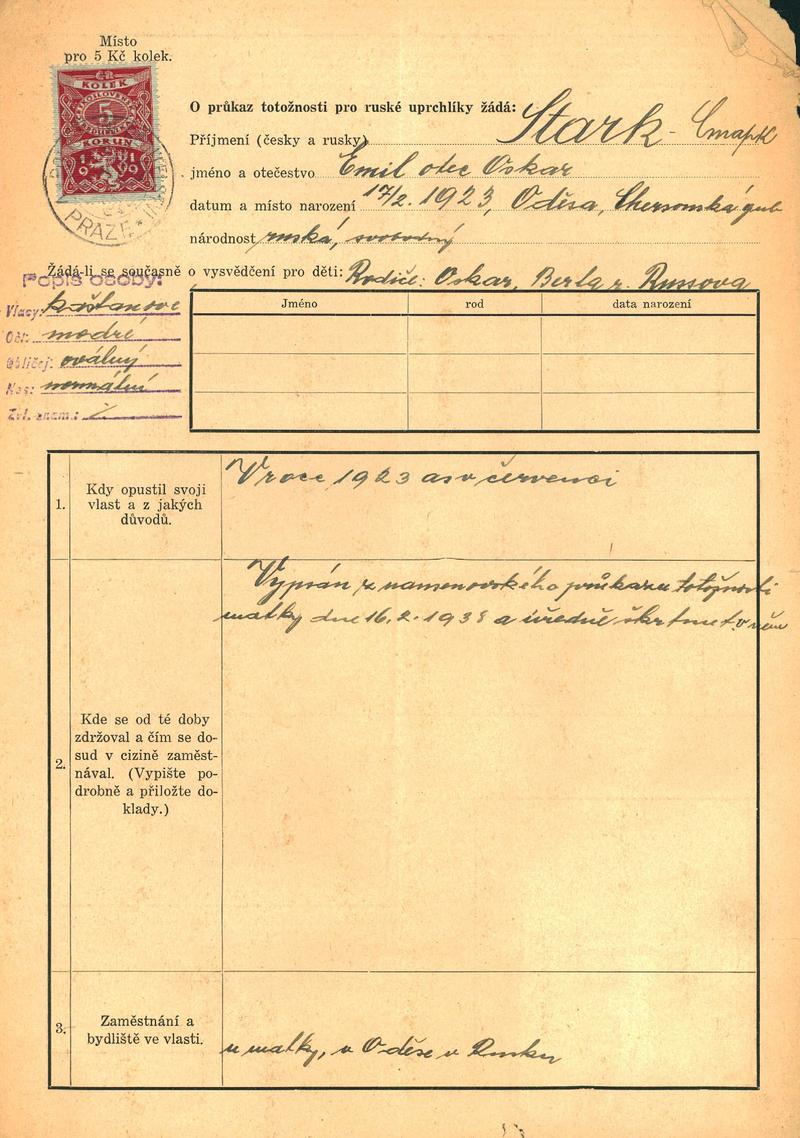 Místo
pro 5 Kč kolek.
KOLEK
5
KORUN
1919
PRAZE
O průkaz totožnosti pro ruské uprchlíky žádá:
Příjmení (česky a rusky) Stark - Старк
jméno a otečestvo Emil otec Oskar
datum a místo narození 17/2. 1923, Oděsa, Chersonská gub
národnost ruská, svobodný
Žádá-li se současně o vysvědčení pro děti: Rodiče: Oskar, Berta r. Russova
Popis osoby:
Vlasy: kaštanové
Oči: modré
Obličej: oválný
Nos: normální
Zvl. znam.:
Jméno rod data narození
1. Kdy opustil svoji vlast a z jakých důvodů.
V roce 1923 asi v červenci
2. Kde se od té doby zdržoval a čím se dosud v cizině zaměstnával. (Vypište podrobně a přiložte doklady.)
Vypsán z nansenovského průkazu totožnosti
matky dne 16.2.1938 a úředně škrtnut v něm
3. Zaměstnání a bydliště ve vlasti.
u matky, v Oděse v Rusku